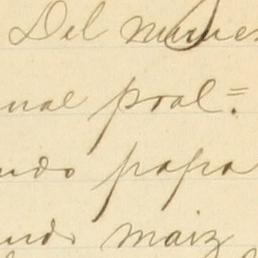 Del nume
nal pral=.
ndo papa
ndo maiz